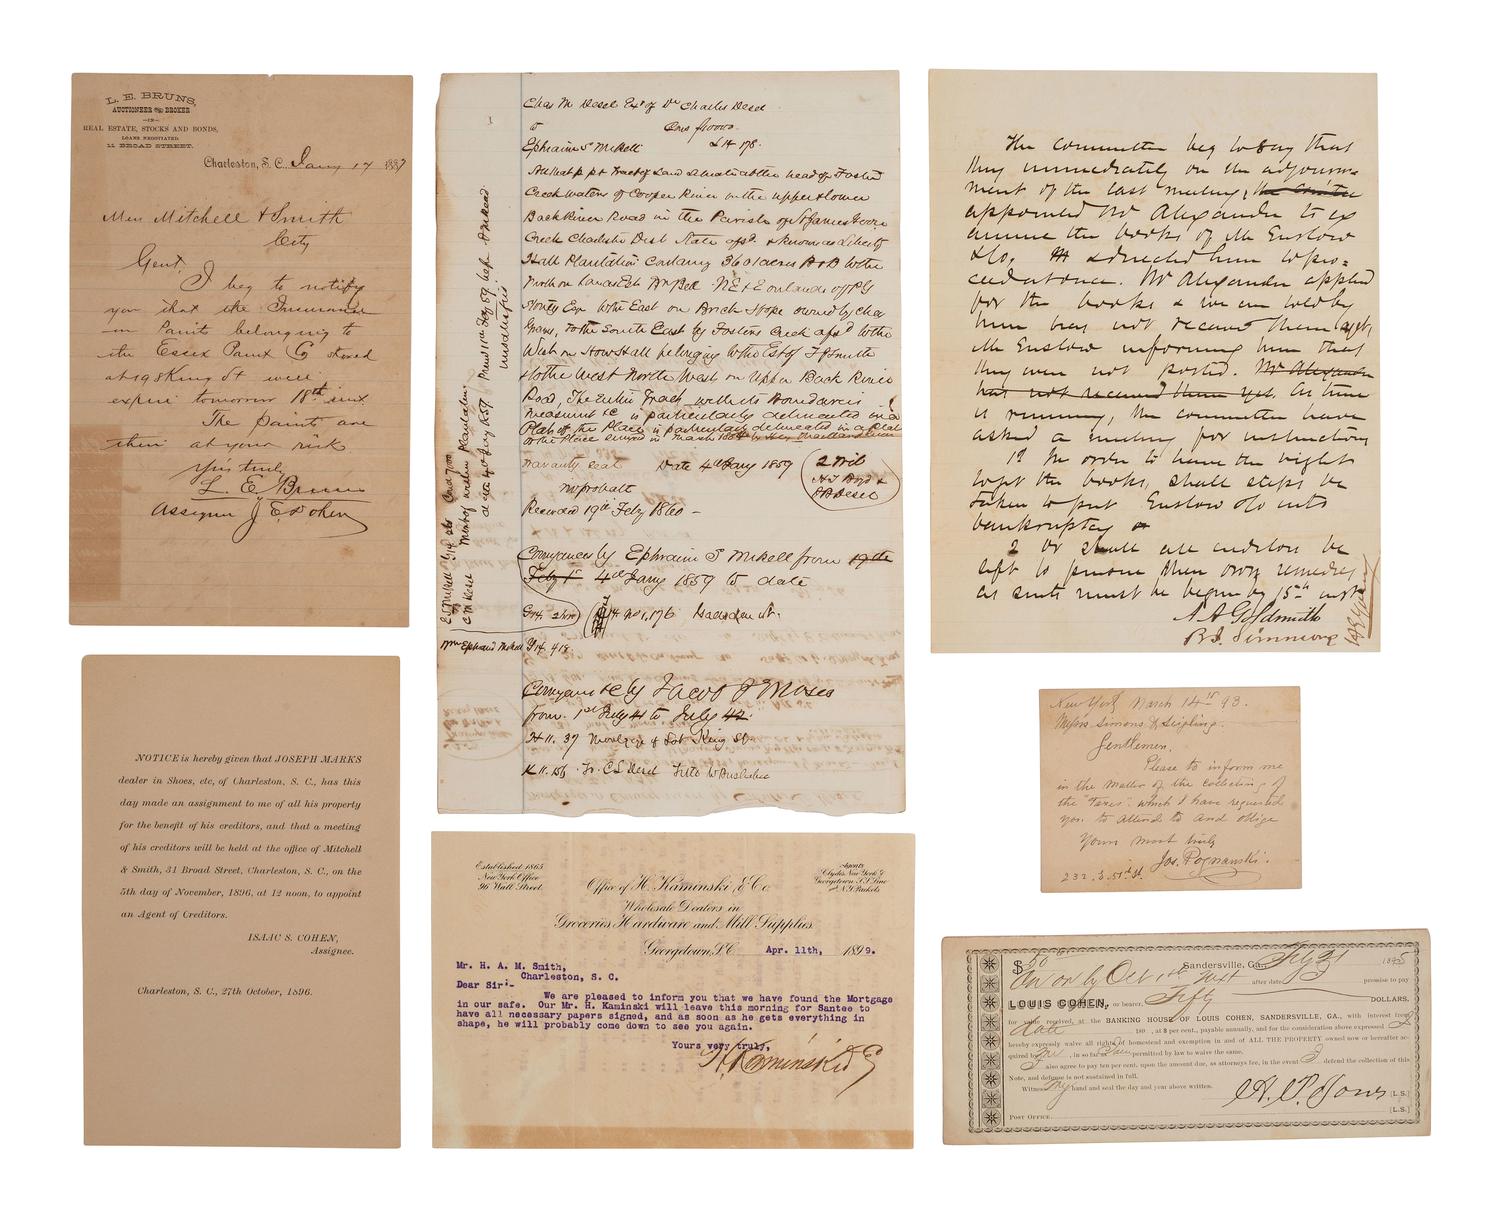 L. E. BRUNS,
AUCTIONEER AND BROKER
—IN—
REAL ESTATE, STOCKS AND BONDS,
LOANS NEGOTIATED.
11 BROAD STREET.
Charleston, S. C., Jany 17 1887
Mess Mitchell & Smith
City
Gent,
I beg to notify
you that the Insurance
on Paints belonging to
the Essex Paint Co stored
at 198 King St will
expire tomorrow 18th inst.
The Paints are
then at your risk
Yrs truly
L. E. Bruns
Assignee J E Cohen
NOTICE is hereby given that JOSEPH MARKS
dealer in Shoes, etc, of Charleston, S. C., has this
day made an assignment to me of all his property
for the benefit of his creditors, and that a meeting
of his creditors will be held at the office of Mitchell
& Smith, 31 Broad Street, Charleston, S. C., on the
5th day of November, 1896, at 12 noon, to appoint
an Agent of Creditors.
ISAAC S. COHEN,
Assignee.
Charleston, S. C., 27th October, 1896.
Chas M Desel Exr of Dr Charles Desel
to
Ephraim S Mikell
All that p. p & Tract of Land situate at the head of Foster
Creek waters of Cooper River on the upper & lower
Back River Road in the Parish of St James Goose
Creek Charleston Dist State afsd. & known as Liberty
Hall Plantation Containg 3601 acres B & B to the
North on Lands
to the East on Brick Hope owned by Chas
to the South East by Fosters Creek afsd to the
West on How Hall belonging to the Est of
& to the West North West on Upper Back River
Road, The Entire Tract with its Boundaries
Measurement &c is particularly delineated in a
Plat of the Place is particularly delineated in a Plat
of the Place
Warranty Seal Date 4th Jany 1859
2 Wit
H I Boyd &
B Desel
no probate
Recorded 19th Feby 1860 —
Conveyances by Ephraim S Mikell from 19th
Feby 1st 4th Jany 1859 to date
G 14 No 1, 176 Gadsden St.
Wm Ephraim Mikell G 14, 418
Conveyances &c by Jacob P Moses
from 1st July 41 to July 42.
H 11. 37 Mortgage of Lot King St
K 11. 156
Established 1865
New York Office
96 Wall Street.
Agents
Clydes New York &
Georgetown S.S. Line
and N.Y. Packets
Office of H. Kaminski & Co.
Wholesale Dealers in
Groceries Hardware and Mill Supplies
Georgetown, S.C. Apr. 11th, 1899.
Mr. H. A. M. Smith,
Charleston, S. C.
Dear Sir:-
We are pleased to inform you that we have found the Mortgage
in our safe. Our Mr. H. Kaminski will leave this morning for Santee to
have all necessary papers signed, and as soon as he gets everything in
shape, he will probably come down to see you again.
Yours very truly,
H. Kaminski & Co
The committee beg to say that
they immediately on the adjourn-
ment of the last meeting, the
appointed Mr Alexander to ex
amine the books of Mr Enslow
& Co. & directed him to pro-
ceed at once. Mr Alexander applied
for the books & we are told by
him has not received them as yet,
Mr Enslow informing him that
they were not posted. Mr Alexander
has not received them yet. As time
is running, the committee have
asked a meeting for instruction
1st In order to have the right
to get the books, shall steps be
taken to put Enslow & Co into
bankruptcy or
2 Or shall all creditors be
left to pursue their own remedies
as suits must be begun by 15th inst
A A Goldsmith
B. I. Simmons
New York March 14th 93.
Messrs Simons & Seigling.
Gentlemen.
Please to inform me
in the Matter of the Collecting of
the "Taxes" which I have requested
you to attend to and oblige
Yours most truly
Jos. Poznanski.
232. E. 51st St.
$50 Sandersville, Ga., 1895
On or by Oct 1st next after date I promise to pay
LOUIS COHEN, or bearer, Fifty DOLLARS,
for value received, at the BANKING HOUSE OF LOUIS COHEN, SANDERSVILLE, GA., with interest from
date 189 , at 8 per cent., payable annually, and for the consideration above expressed I
hereby expressly waive all right of homestead and exemption in and of ALL THE PROPERTY owned now or hereafter ac-
quired by me , in so far as I am permitted by law to waive the same.
I also agree to pay ten per cent. upon the amount due, as attorneys fee, in the event I defend the collection of this
Note, and defense is not sustained in full.
Witness my hand and seal the day and year above written.
A. P. Jones [L. S.]
[L. S.]
POST OFFICE